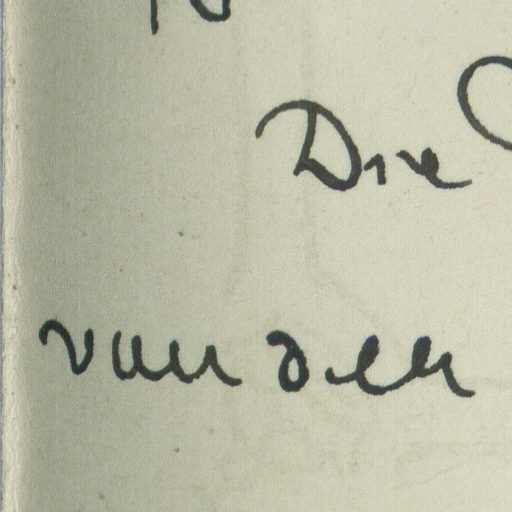 Die
van den